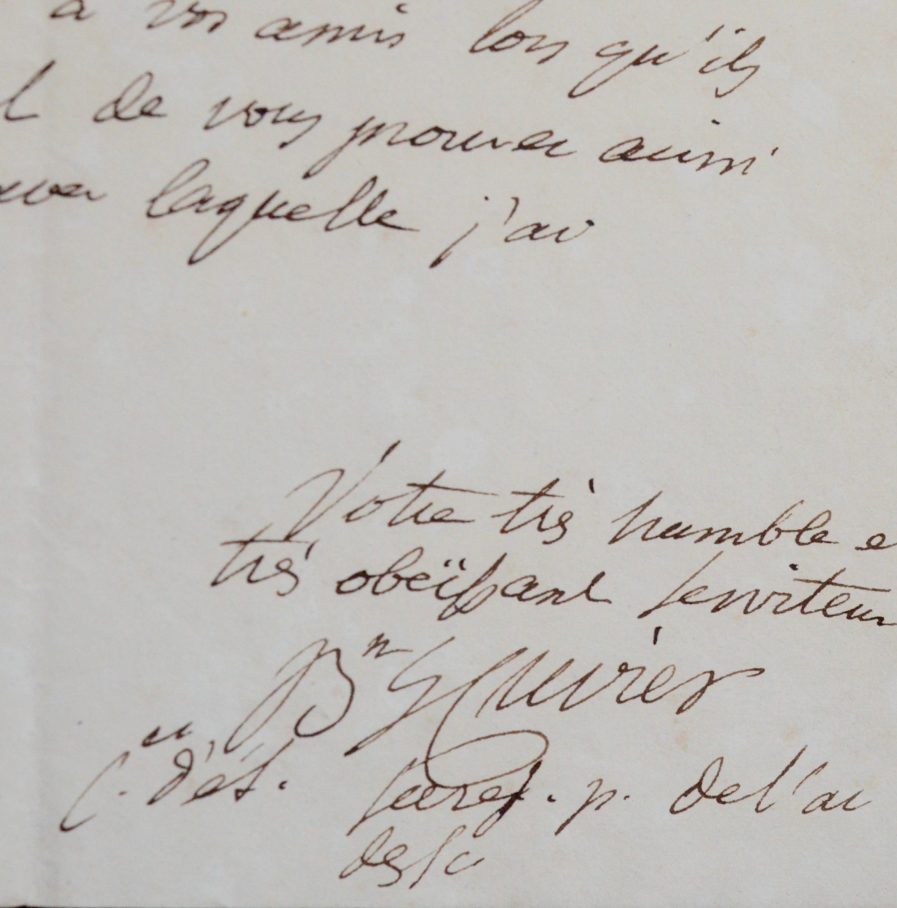 à vos amis lors qu'ils
l de vous prouver aussi
avec laquelle j'ai
Votre très humble e
très obeïssant serviteur
Bn G Cuvier
C.er d'ét. secret. p. de l'ac
des sc